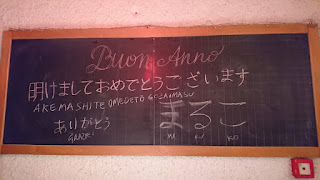 Buon Anno
明けましておめでとうございます
AKEMASHITE OMEDETO GOZAIMASU
ありがとう まるこ
GRAZIE MA RU KO